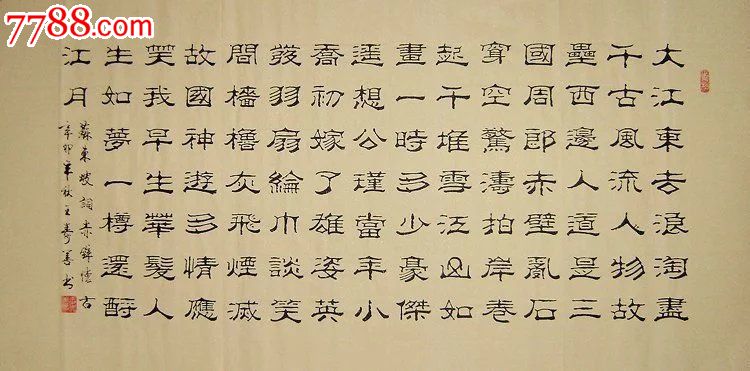 7788.com
大江東去浪淘盡
千古風流人物故
壘西邊人道是三
國周郎赤壁亂石
穿空驚濤拍岸卷
起千堆雪江山如
畫一時多少豪傑
遥想公瑾當年小
喬初嫁了雄姿英
發羽扇綸巾談笑
間檣櫓灰飛煙滅
故國神遊多情應
笑我早生華髮人
生如夢一樽還酹
江月
蘓東坡詞赤壁懷古
辛卯年秋王壽善书